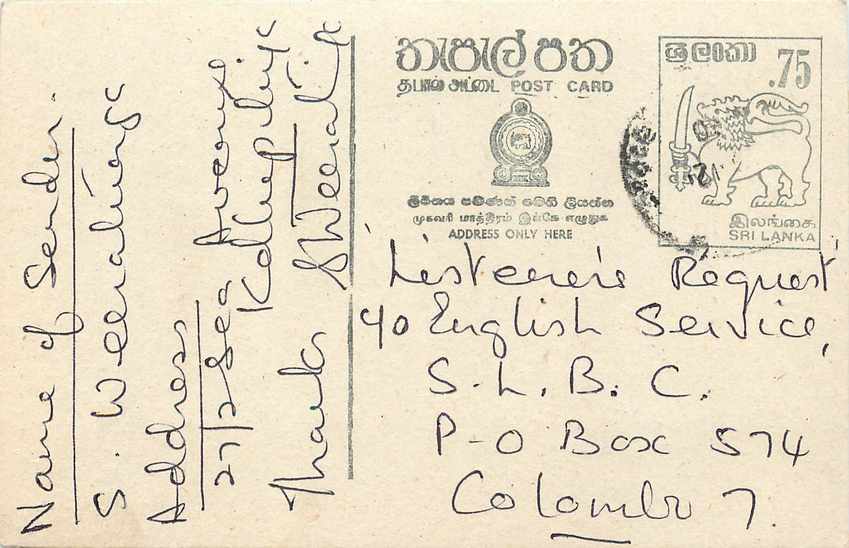 තැපැල් පත
தபால் அட்டை POST CARD
ලිපිනය පමණක් මෙහි ලියන්න
முகவரி மாத்திரம் இங்கே எழுதுக
ADDRESS ONLY HERE
ශ්‍රී ලංකා
.75
இலங்கை
SRI LANKA
'Listener's Request'
c/o English Service,
S.L.B.C.
P-O Box 574
Colombo 7.
Name of Sender.
S. Weeratunga
Address
27/2 Sea Avenue
Thanks